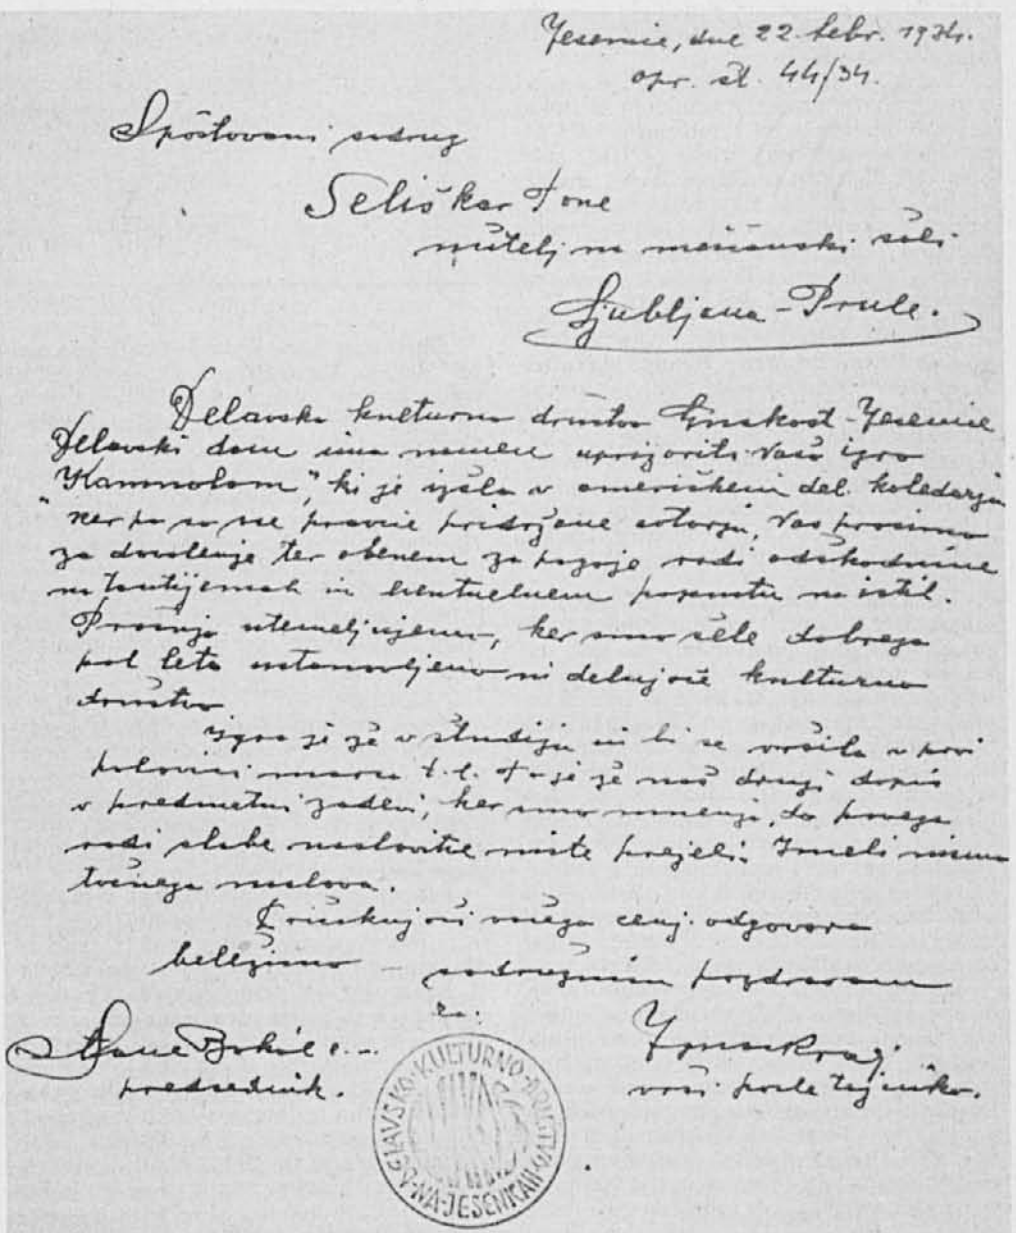 Jesenice, dne 22. febr. 1934.
opr. št. 44/34.
Spoštovani sodrug
Seliškar Tone
učitelj na meščanski šoli
Ljubljana - Prule.
Delavsko kulturno društvo Enakost - Jesenice
Delavski dom ima namen uprizoriti Vašo igro
"Kamnolom", ki je izšla v ameriškem del. koledarju
Ker pa so vse pravice pridržane avtorju, Vas prosimo
za dovoljenje ter obenem za pogoje radi odškodnine
na tantijemah in eventuelnem popustu na istih.
Prošnjo utemeljujemo, ker smo šele dobrega
pol leta ustanovljeno in delujoče kulturno
društvo
Igra je že v študiju in bi se vršila v prvi
polovici marca t. l. To je že naš drugi dopis
v predmetni zadevi, ker smo mnenja, da prvega
radi slabe naslovitve niste prejeli. Imeli nismo
točnega naslova.
Pričakujoč vašega cenj. odgovora
beležimo sodružnim pozdravom
za:
predsednik. vrši posle tajnika.
DELAVSKO-KULTURNO-DRUŠTVO
NA-JESENICAH